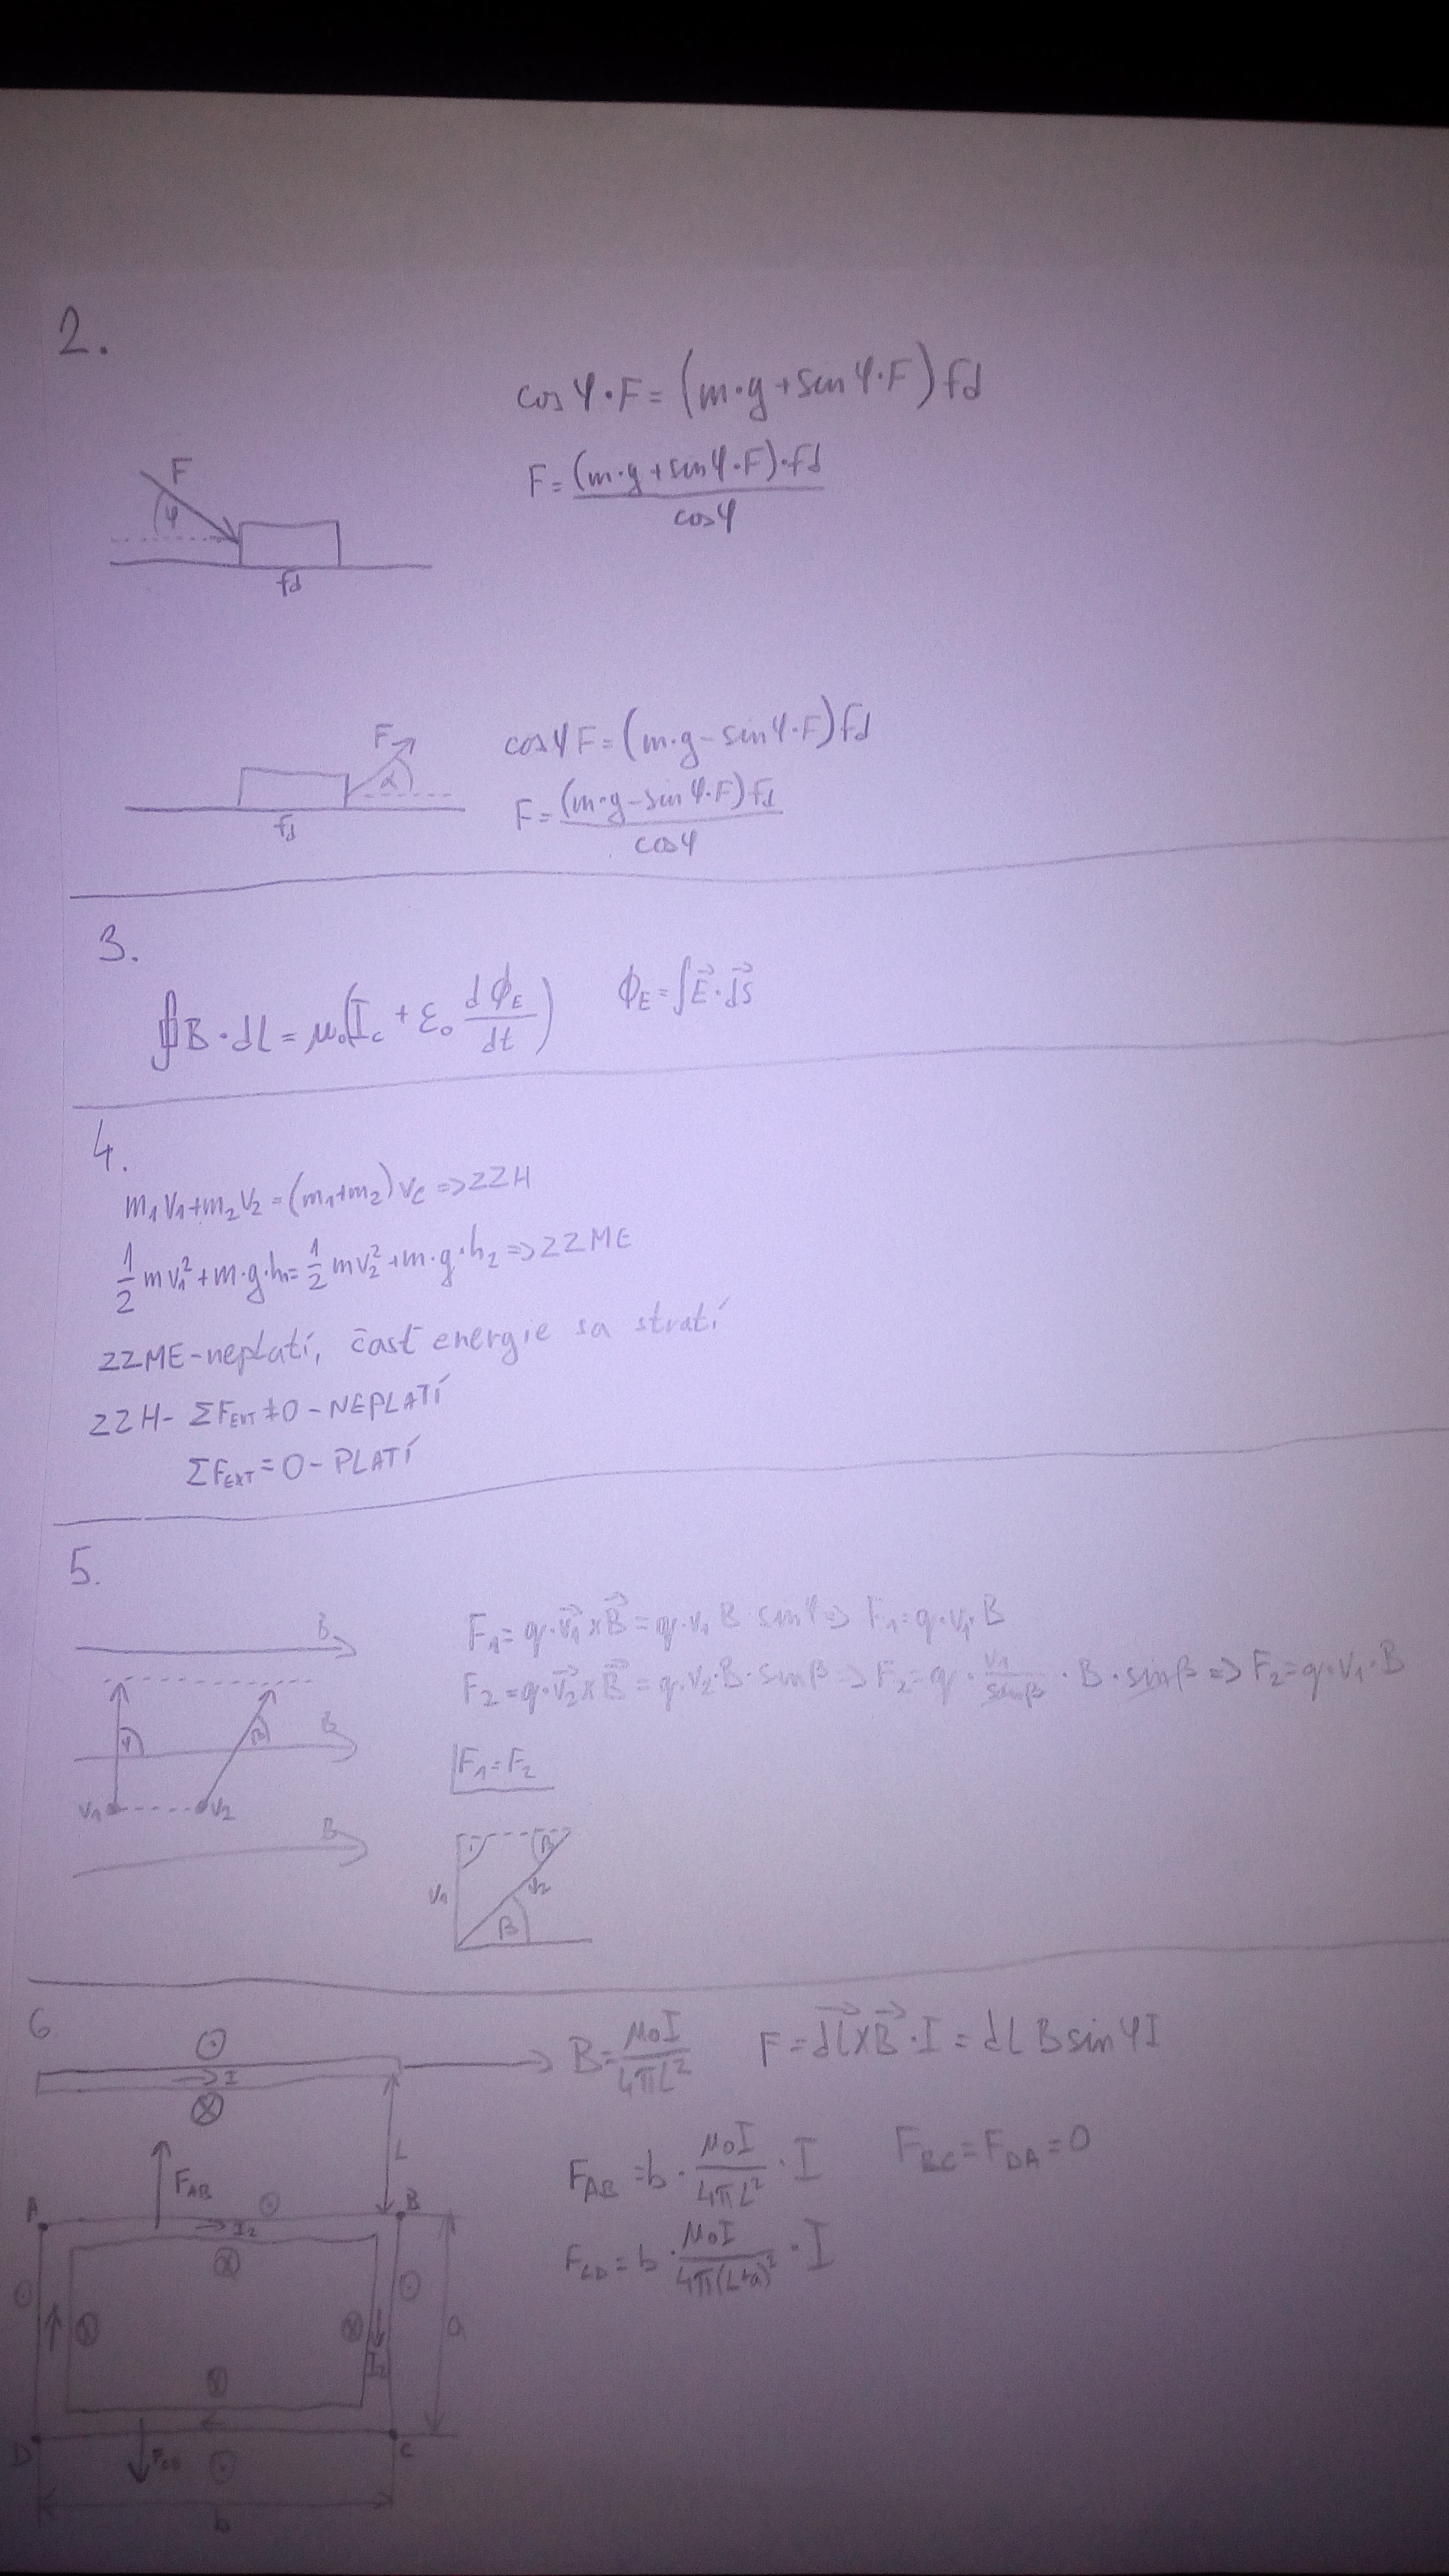 2.
cos φ · F = (m·g + sin φ · F) fd
F = (m·g + sin φ · F) · fd / cos φ
F
φ
fd
cos φ F = (m·g - sin φ · F) fd
F = (m·g - sin φ · F) fd / cos φ
F
α
fd
3.
∮B · dL = μ₀(I_c + ε₀ dϕ_E / dt) ϕ_E = ∫E⃗ · dS⃗
4.
m₁v₁ + m₂v₂ = (m₁+m₂) v_c => ZZH
1/2 mv₁² + m·g·h₁ = 1/2 mv₂² + m·g·h₂ => ZZME
ZZME - neplatí, časť energie sa stratí
ZZH - ΣF_EXT ≠ 0 - NEPLATÍ
ΣF_EXT = 0 - PLATÍ
5.
B
φ β B
v₁ v₂
B
F₁ = q · v⃗₁ x B⃗ = q·v₁ B · sin φ => F₁ = q·v₁·B
F₂ = q·v⃗₂ x B⃗ = q·v₂·B·sin β => F₂ = q · v₁ / sin β · B · sin β => F₂ = q·v₁·B
F₁ = F₂
β
v₁ v₂
β
6
⊙
→ I
⊗
L
B = μ₀I / 4πL² F = dL⃗ x B⃗ · I = dL B sin φ I
F_AB = b · μ₀I / 4πL² · I F_BC = F_DA = 0
F_CD = b · μ₀I / 4π(L+a)² · I
F_AB
A ⊙ B
→ I₂
⊗
⊙ ⊗ ⊗ ⊙ a
I₂
⊗
D F_CD ⊙ C
b